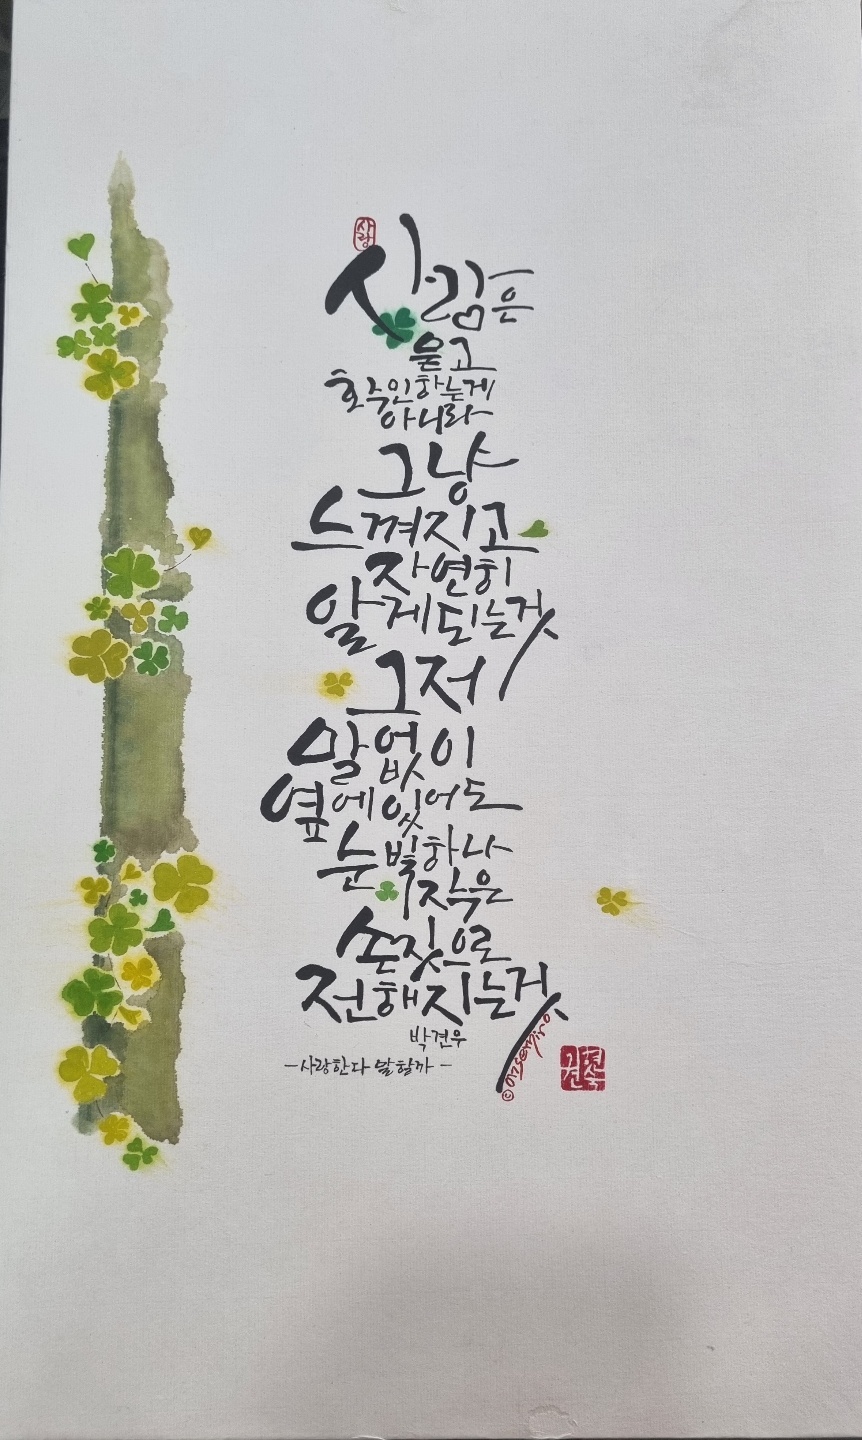 사랑
사랑은
묻고
확인하는게
아니라
그냥
느껴지고
자연히
알게되는것
그저
말없이
옆에있어도
눈빛하나
작은
손짓으로
전해지는것
박견우
-사랑한다 말할까-